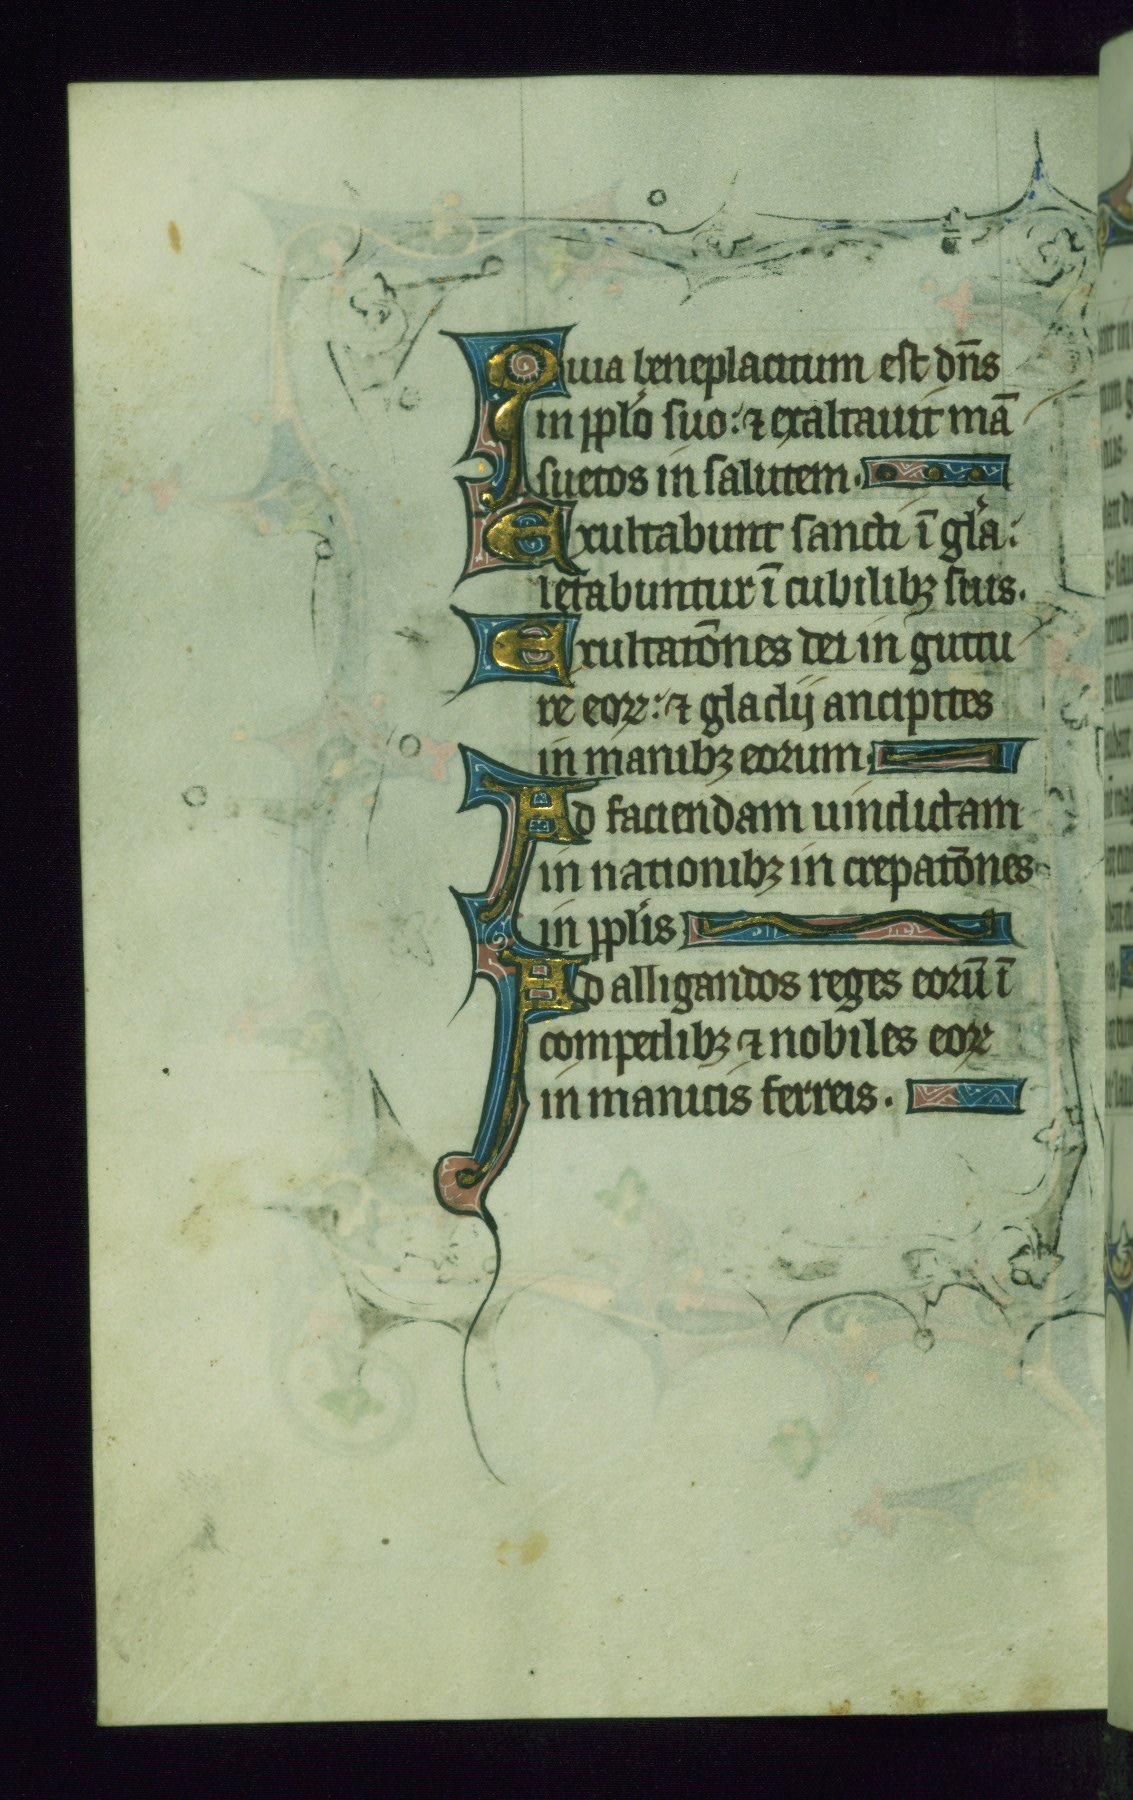 Quia beneplacitum est dn̄s
in pp̱lo suo: ⁊ exaltauit mā
suetos in salutem.
Exultabunt sancti ī gl̄a:
letabuntur ī cubilibꝫ suis.
Exultatōnes dei in guttu
re eoꝝ: ⁊ gladij ancipites
in manibꝫ eorum.
Ad faciendam uindictam
in nationibꝫ in crepatōnes
in pp̱lis
Ad alligandos reges eorū ī
compedibꝫ ⁊ nobiles eoꝝ
in manicis ferreis.